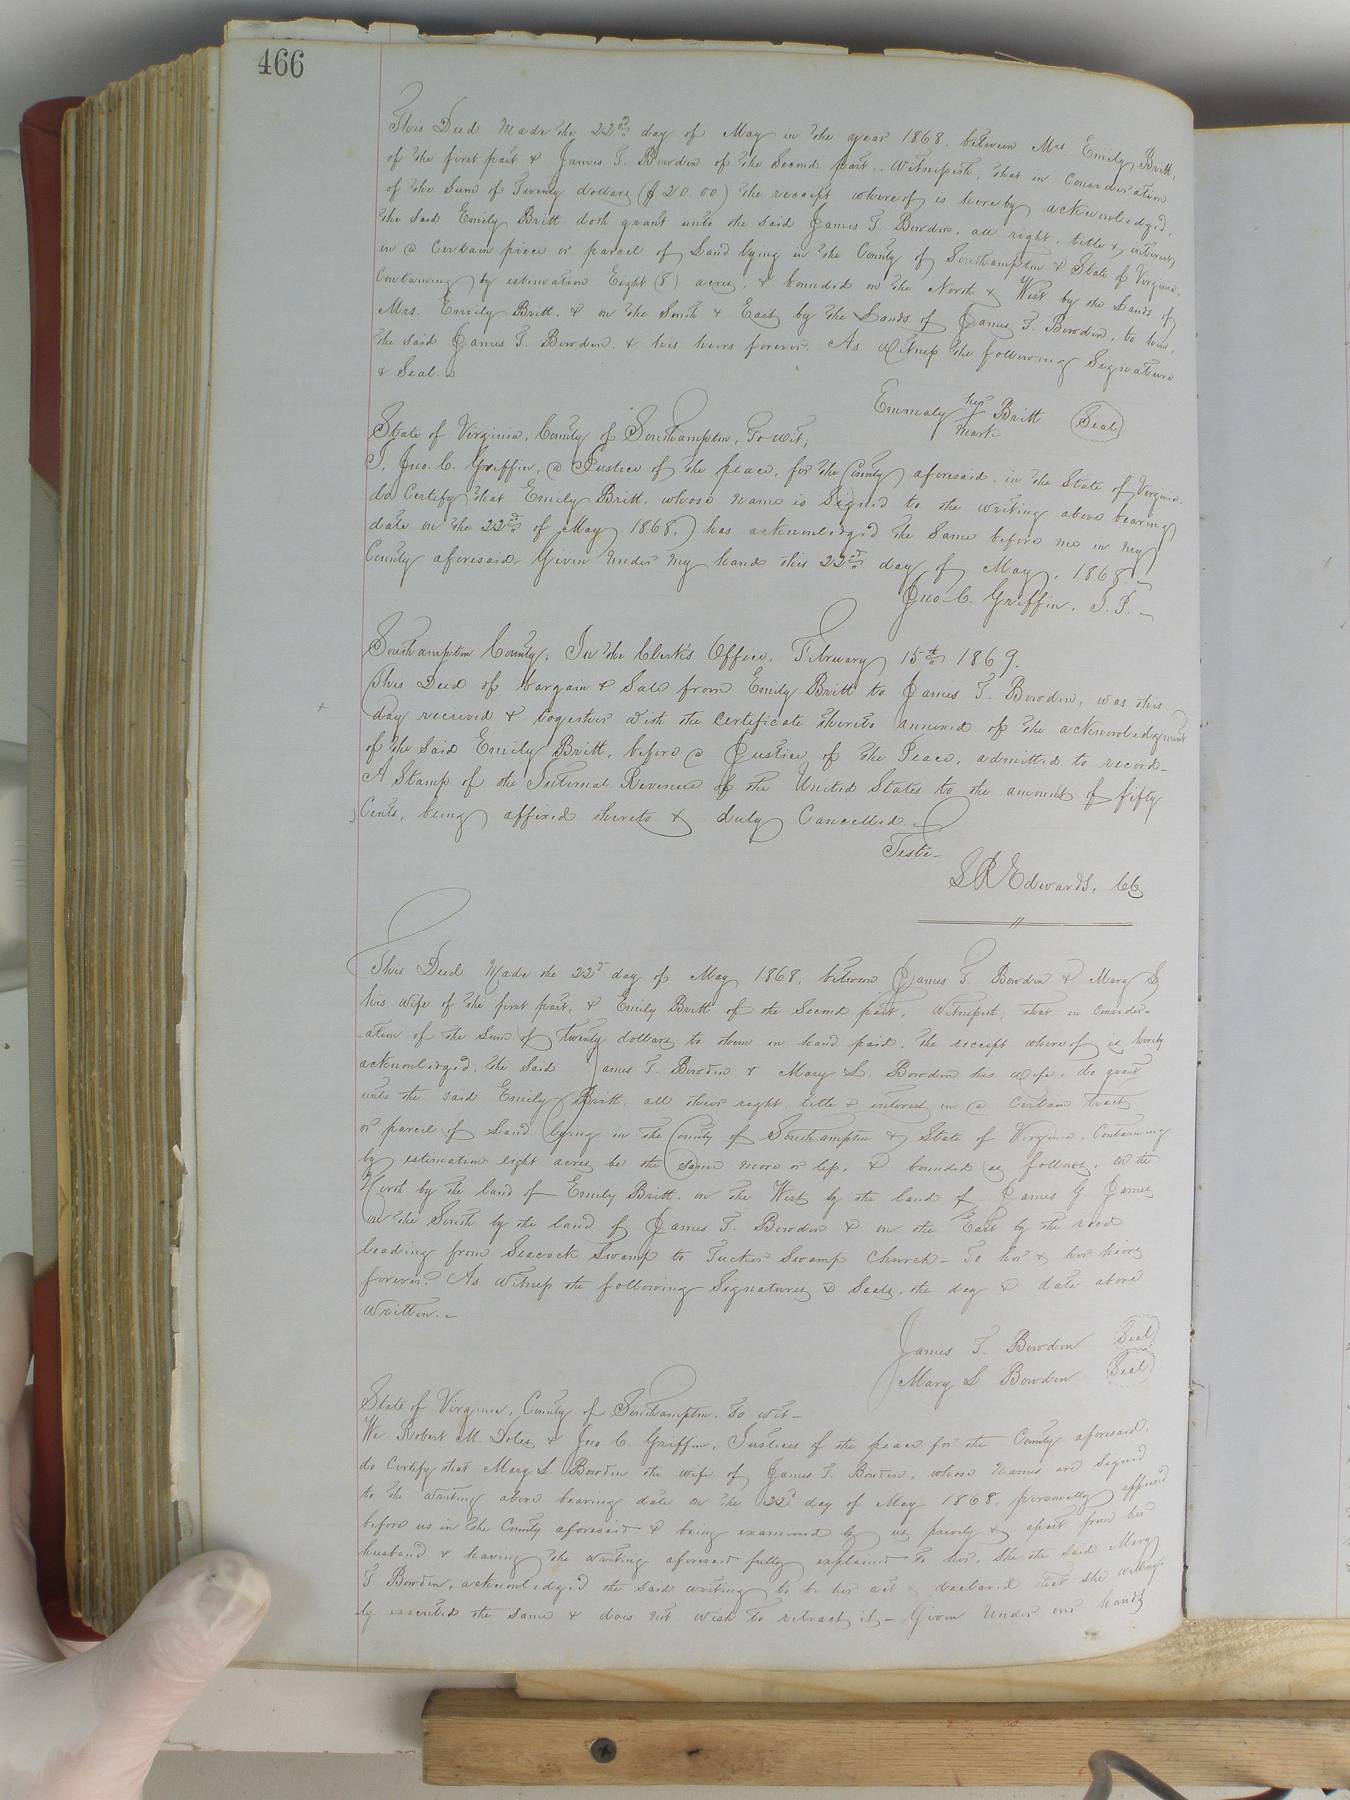 466
This Deed Made the 22nd day of May in the year 1868. between Mrs. Emily Britt,
of the first part & James T. Bowden of the Second part, Witnesseth, that in Consideration
of the Sum of Twenty dollars ($20.00) the receipt whereof is hereby acknowledged,
the Said Emily Britt doth grant unto the said James T. Bowden, all right, title & interest
in a Certain piece or parcel of Land lying in the County of Southampton & State of Virginia,
Containing by estimation Eight (8) acres, & bounded on the North & West by the Lands of
Mrs. Emily Britt, & on the South & East by the Lands of James T. Bowden, to him,
the said James T. Bowden, & his heirs forever. As Witness the following Signature
& Seal.
Emmaly her Britt Seal
mark
State of Virginia, County of Southampton, To wit;
I, Jno. C. Griffin, a Justice of the peace, for the County aforesaid, in the State of Virginia,
do Certify that Emily Britt, whose name is Signed to the writing above bearing
date on the 22nd of May 1868, has acknowledged the Same before me in my
County aforesaid. Given under my hand this 22nd day of May, 1868.
Jno. C. Griffin, J. P.
Southampton County, In the Clerk's Office, February 15th 1869.
This Deed of bargain & Sale from Emily Britt to James T. Bowden, was this
day received & together with the Certificate thereto annexed of the acknowledgment
of the Said Emily Britt, before a Justice of the Peace, admitted to record-
A Stamp of the Internal Revenue of the United States to the amount of fifty
Cents, being affixed thereto & duly Cancelled.
Teste-
L R Edwards, CC
This Deed Made the 22d day of May 1868, between James T. Bowden & Mary L
his wife of the first part, & Emily Britt of the Second part, Witnesseth; that in Consider-
-ation of the Sum of twenty dollars to them in hand paid, the receipt whereof is hereby
acknowledged, the Said James T. Bowden & Mary L. Bowden his wife, do grant
unto the said Emily Britt, all their right title & interest in a Certain tract
or parcel of Land lying in the County of Southampton & State of Virginia, Containing
by estimation eight acres be the Same more or less, & bounded as follows, on the
North by the land of Emily Britt, on the West by the land of James G. James
on the South by the land of James T. Bowden & on the East by the road
leading from Seacock Swamp to Tucker Swamp Church - To her & her heirs
forever. As Witness the following Signatures & Seals, the day & date above
written.
James T. Bowden Seal
Mary L Bowden Seal
State of Virginia, County of Southampton, To wit-
We Robert M. Doles & Jno C. Griffin, Justices of the peace for the County aforesaid,
do Certify that Mary L. Bowden the wife of James T. Bowden, whose names are Signed
to the writing above bearing date on the 22d day of May 1868, personally appeared
before us in the County aforesaid & being examined by us privily & apart from her
husband & having the writing aforesaid fully explained to her, She the said Mary
T. Bowden, acknowledged the said writing to be her act & declared that she willing-
ly executed the same & does not wish to retract it- Given Under our hands